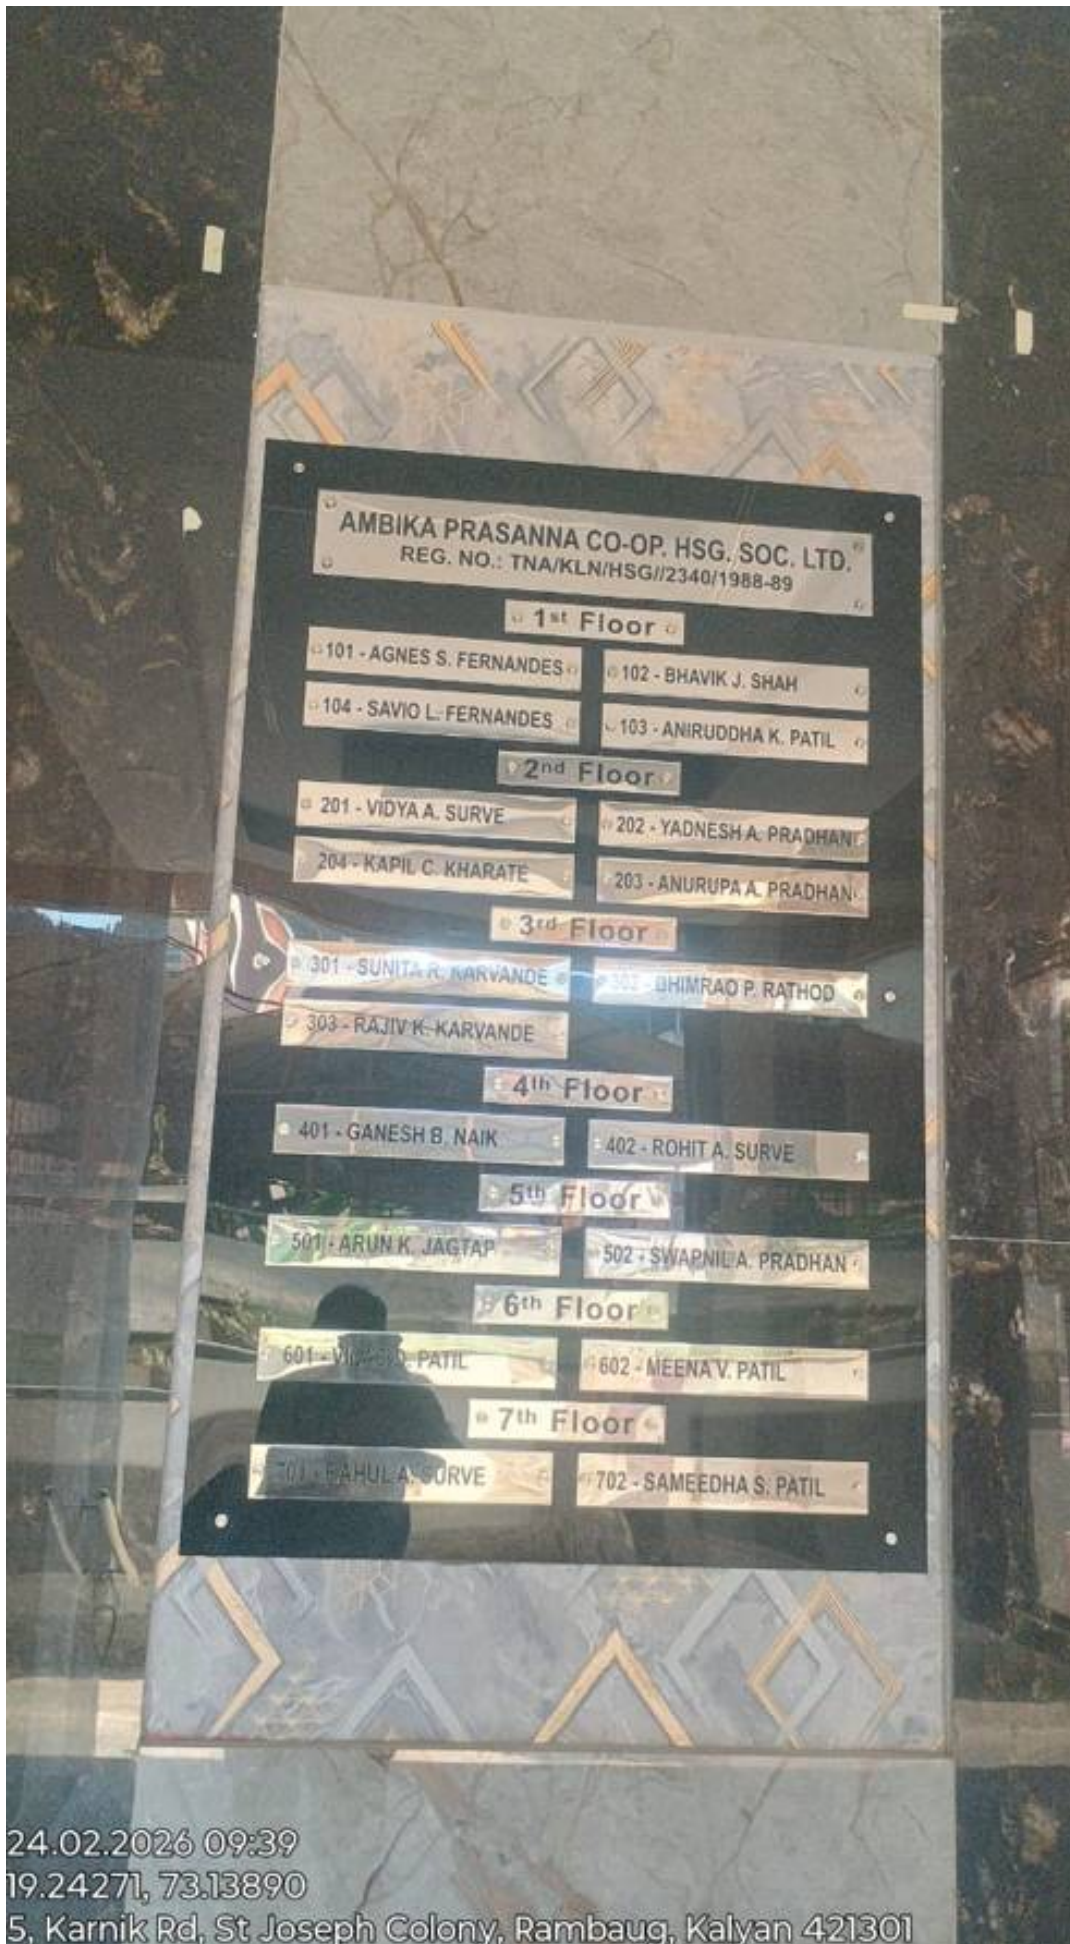 AMBIKA PRASANNA CO-OP. HSG. SOC. LTD.
REG. NO.: TNA/KLN/HSG//2340/1988-89
1st Floor
101 - AGNES S. FERNANDES
102 - BHAVIK J. SHAH
104 - SAVIO L. FERNANDES
103 - ANIRUDDHA K. PATIL
2nd Floor
201 - VIDYA A. SURVE
202 - YADNESH A. PRADHAN
204 - KAPIL C. KHARATE
203 - ANURUPA A. PRADHAN
3rd Floor
301 - SUNITA R. KARVANDE
302 - BHIMRAO P. RATHOD
303 - RAJIV K. KARVANDE
4th Floor
401 - GANESH B. NAIK
402 - ROHIT A. SURVE
5th Floor
501 - ARUN K. JAGTAP
502 - SWAPNIL A. PRADHAN
6th Floor
601 - PATIL
602 - MEENA V. PATIL
7th Floor
701 - RAHUL A. SURVE
702 - SAMEEDHA S. PATIL
24.02.2026 09:39
19.24271, 73.13890
5, Karnik Rd, St Joseph Colony, Rambaug, Kalyan 421301